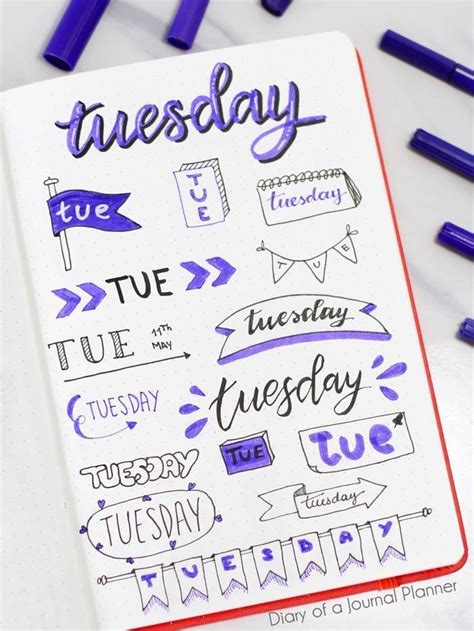 tuesday
tue
TUE
tuesday
TUE
TUE
TUE 11TH MAY
tuesday
TUESDAY
tuesday
TUESDAY
TUE
TUE
TUESDAY
tuesday
TUESDAY
Diary of a Journal Planner